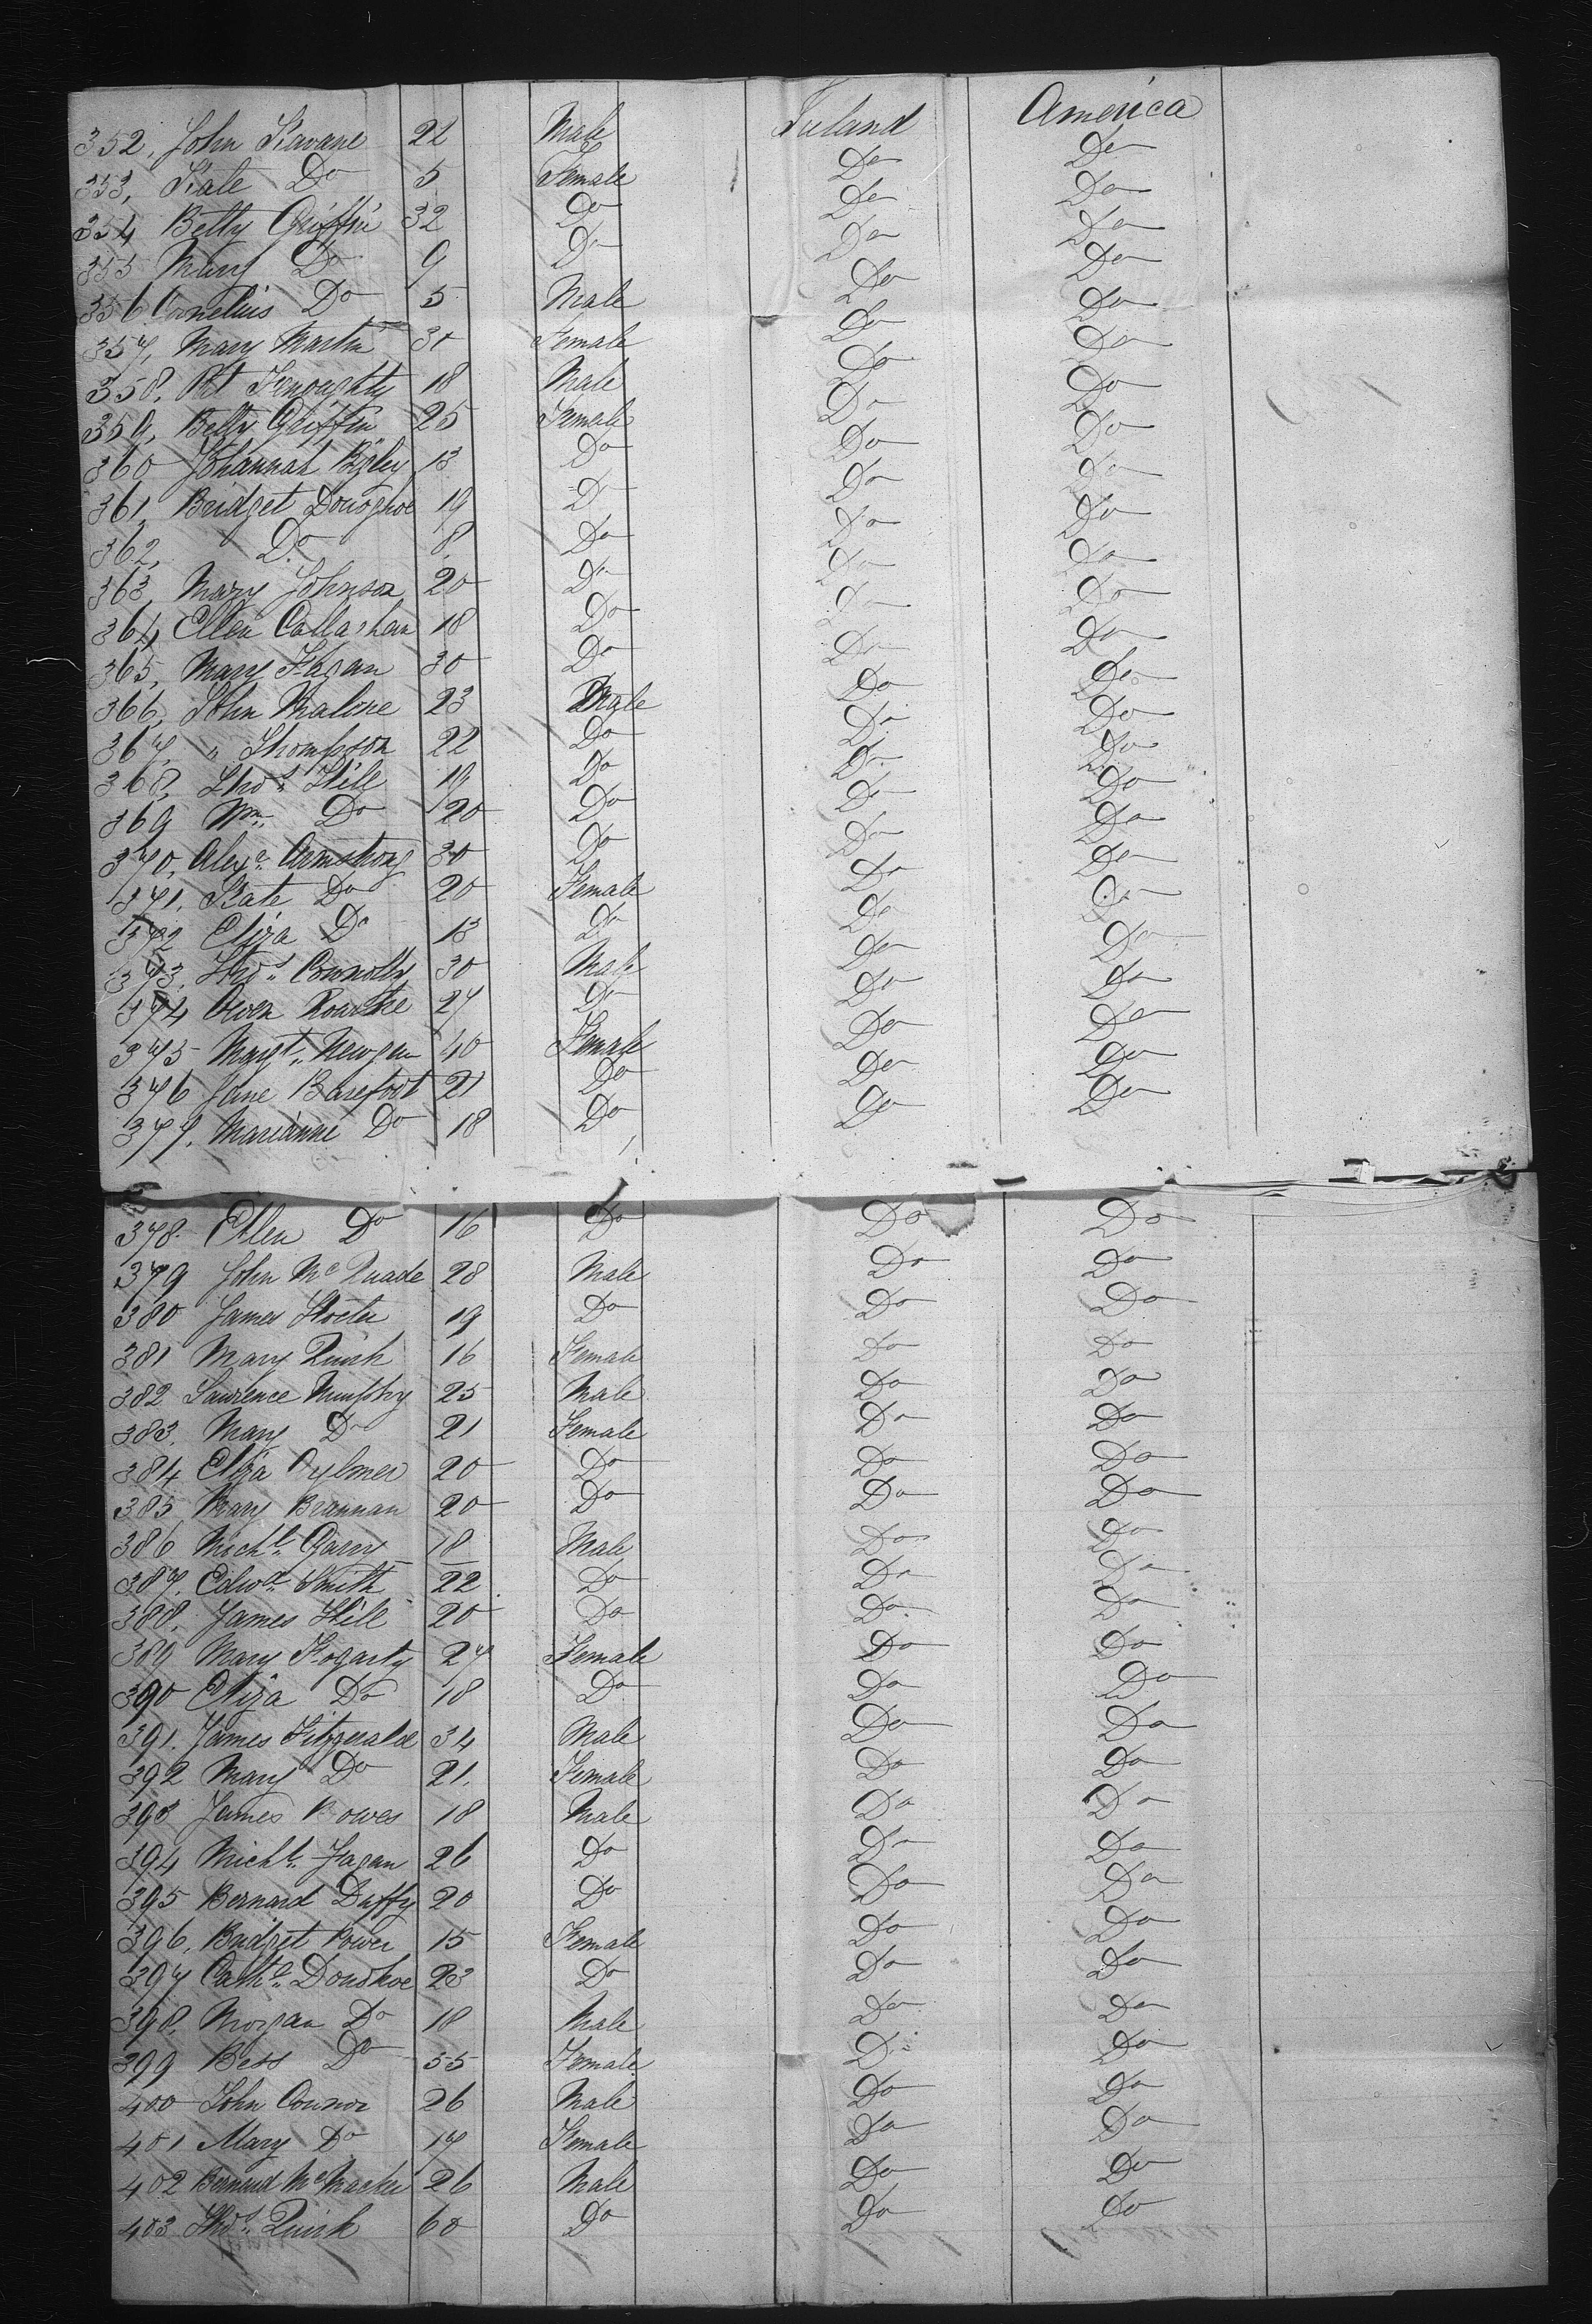 352, John Kavane 22 Male Ireland America
353, Kate Do 5 Female Do Do
354 Betty Griffin 32 Do Do Do
355 Mary Do 9 Do Do Do
356 Cornelius Do 5 Male Do Do
357, Mary Martin 30 Female Do Do
358, Pat Fenoughty 18 Male Do Do
359, Betty Griffin 25 Female Do Do
360 Johannah 13 Do Do Do
361, Bridget Donoghoe 19 Do Do Do
362, Do 8 Do Do Do
363, Mary Johnson 20 Do Do Do
364 Ellen Callaghan 18 Do Do Do
365, Mary Fagan 30 Do Do Do
366, John Malone 23 Male Do Do
367, " Thompson 22 Do Do Do
368, Thos. Hill 19 Do Do Do
369 Wm. Do 20 Do Do Do
370, Alexr. Armstrong 30 Do Do Do
371, Kate Do 20 Female Do Do
372 Eliza Do 13 Do Do Do
373, Thos. Connolly 30 Male Do Do
374 Owen Roarke 27 Do Do Do
375 Margt. Newgen 40 Female Do Do
376 Jane Barefoot 21 Do Do Do
377, Marianne Do 18 Do Do Do
378. Ellen Do 16 Do Do Do
379 John McQuade 28 Male Do Do
380 James 19 Do Do Do
381 Mary Quirk 16 Female Do Do
382 Lawrence Murphy 25 Male Do Do
383, Mary Do 21 Female Do Do
384 Eliza Aylmer 20 Do Do Do
385 Mary Brannan 20 Do Do Do
386 Michl. Garry 18 Male Do Do
387, Edwd. Smith 22 Do Do Do
388, James Hill 20 Do Do Do
389 Mary Fogarty 27 Female Do Do
390 Eliza Do 18 Do Do Do
391. James Fitzgerald 34 Male Do Do
392 Mary Do 21. Female Do Do
393 James Bowes 18 Male Do Do
394 Michl. Fagan 26 Do Do Do
395 Bernard Duffy 20 Do Do Do
396, Bridget Power 15 Female Do Do
397 Cathe. Donohoe 23 Do Do Do
398, Morgan Do 18 Male Do Do
399 Bess Do 55 Female Do Do
400 John Connor 26 Male Do Do
401 Mary Do 17 Female Do Do
402 Bernard McMacken 26 Male Do Do
403 Thos. Quirk 60 Do Do Do